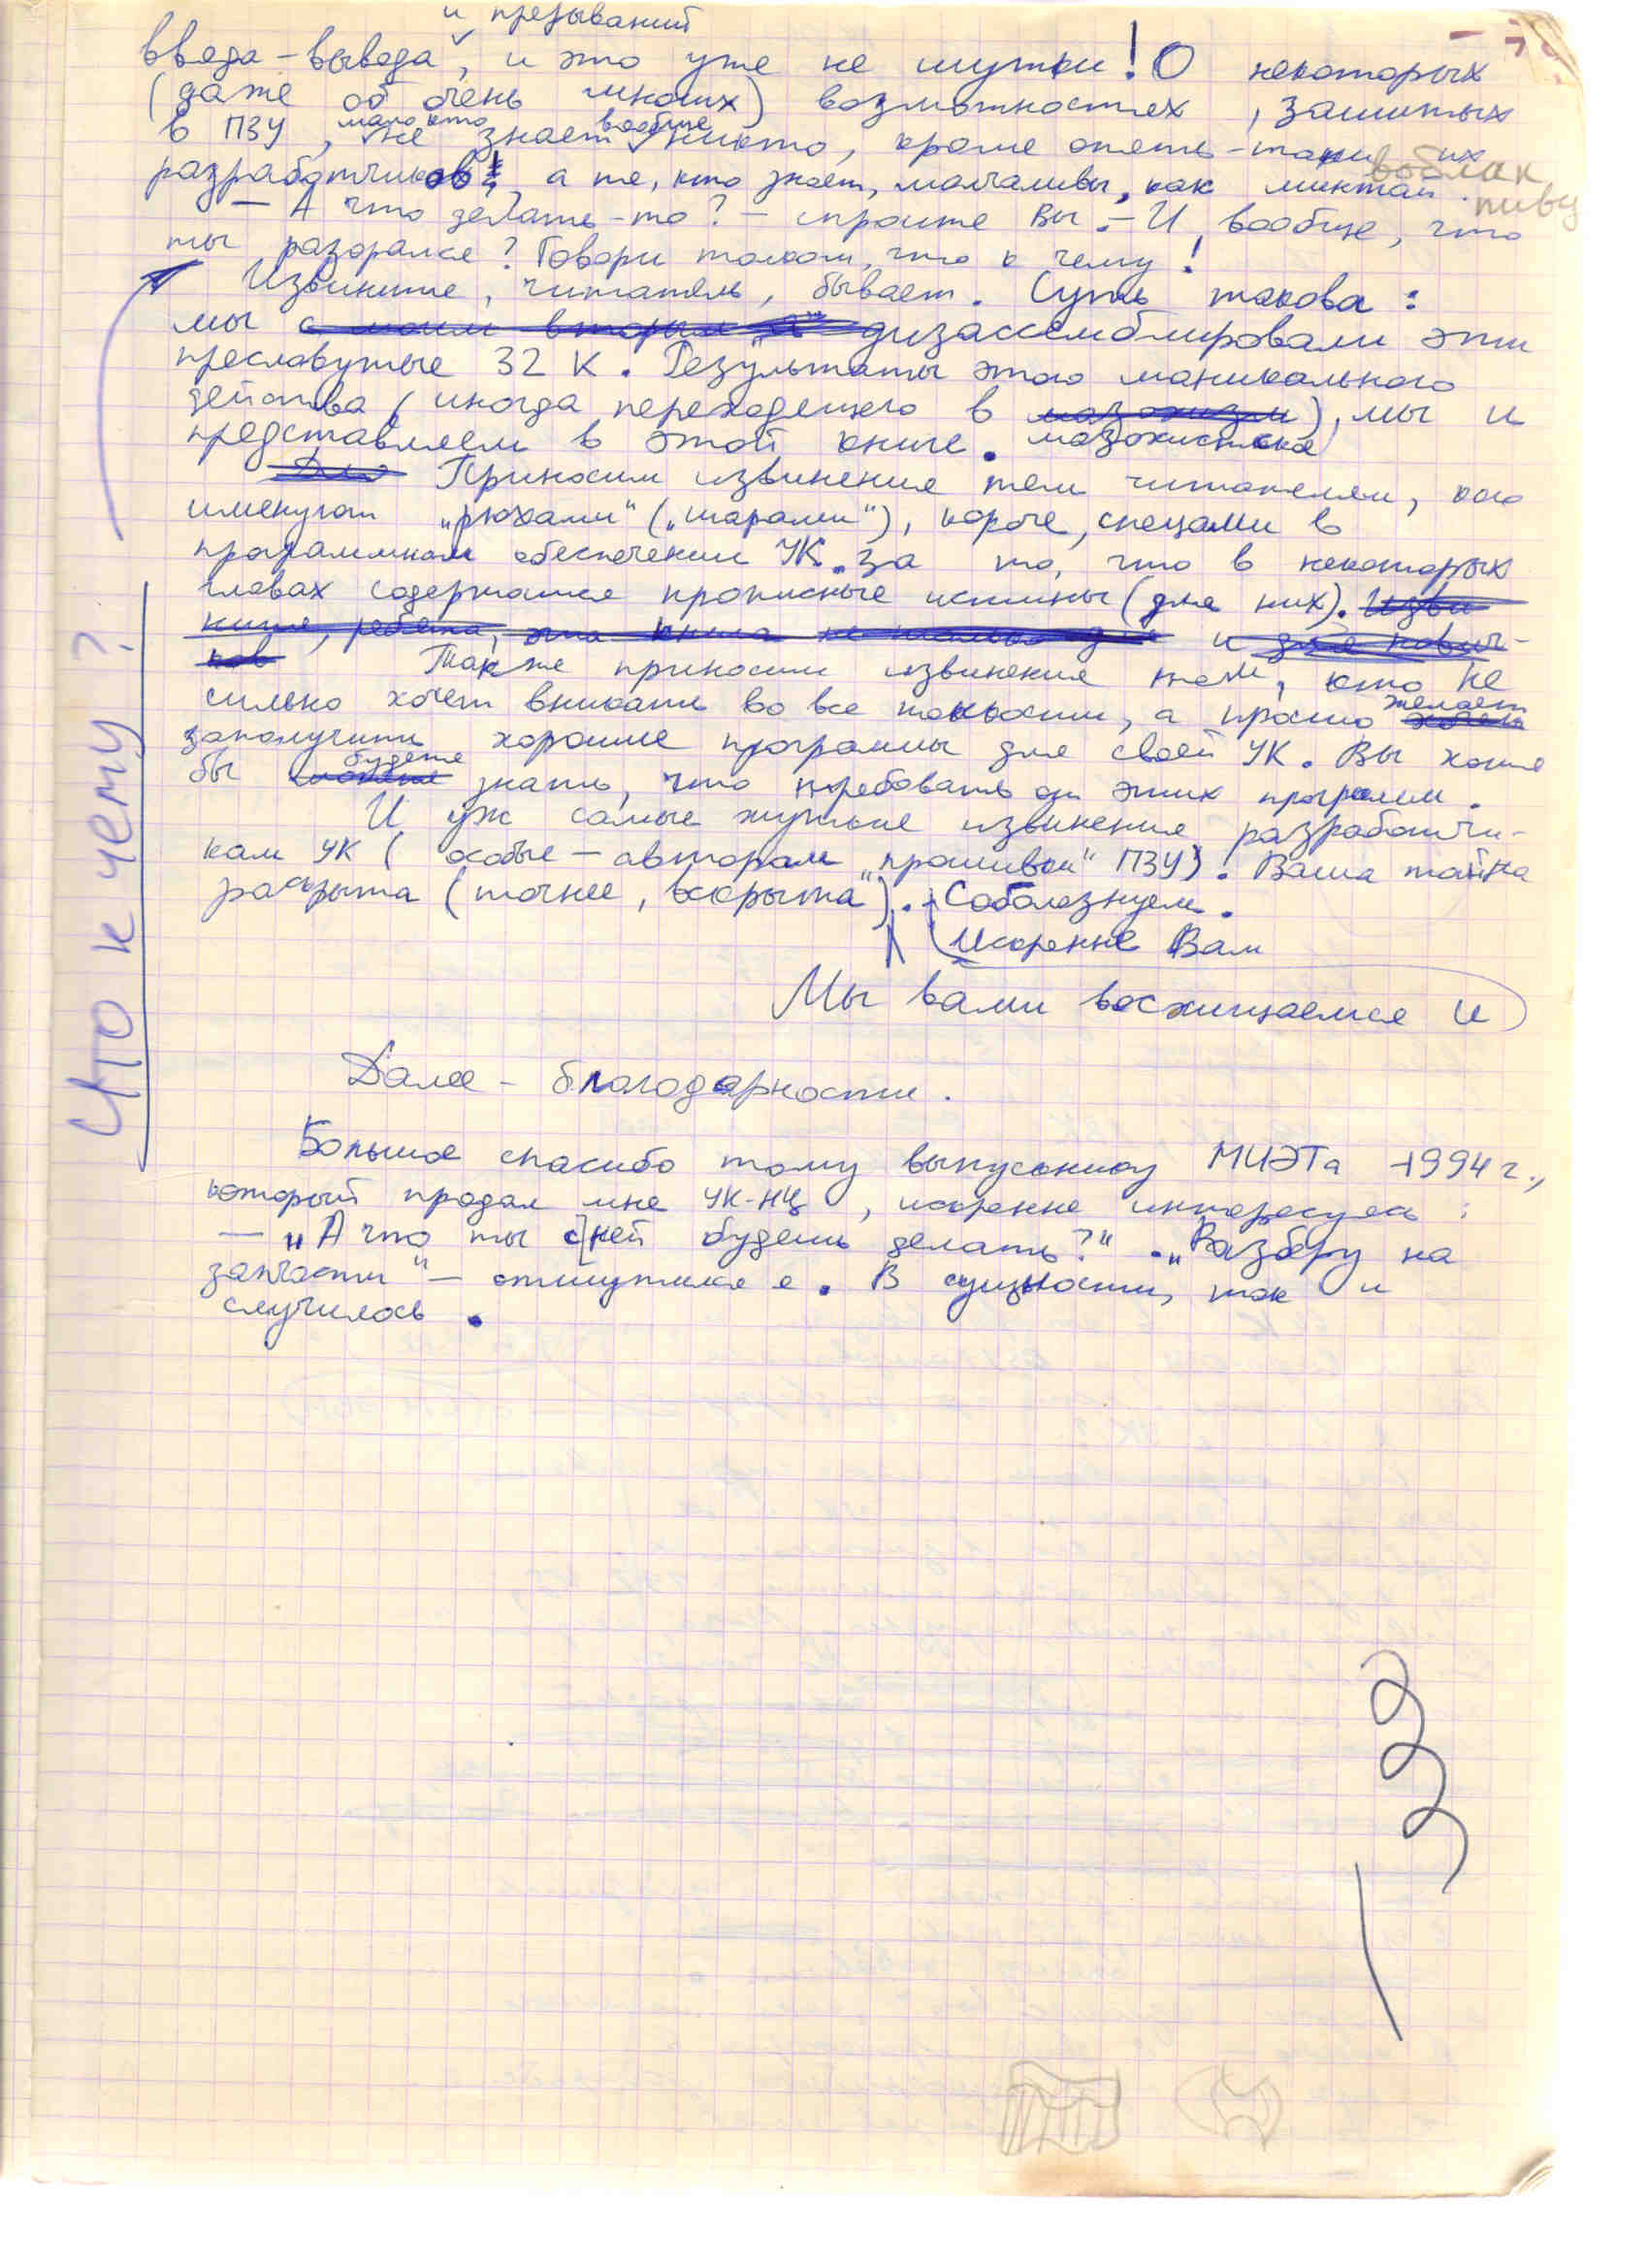 и прерываний
ввода-вывода, и это уже не шутки! О некоторых
(даже об очень многих) возможностях, зашитых
мало кто вообще
в ПЗУ, не знает никто, кроме опять-таки их
разработчиков, а те, кто знает, молчаливы, как минтай.
вобла к
пиву
– А что делать-то? – спросите Вы. – И вообще, что
ты разорался? Говори толком, что к чему!
Извините, читатель, бывает. Суть такова:
мы с моим вторым дизассемблировали эти
преслову­тые 32 К. Результаты этого маникального
действа (иногда переходящего в мазохизм), мы и
представляем в этой книге. мазохистское
Для Приносим извинения тем читателям, кого
именуют „рюхами“ („шарами“), короче, спецами в
программном обеспечении УК. За то, что в некоторых
главах содержатся прописные истины (для них). Изви
ните, ребята, эта книга не только для и для нович-
ков Также приносим извинения тем, кто не
сильно хочет вникать во все тонкости, а просто желает
заполучить хорошие программы для своей УК. Вы хотя
будете
бы можете знать, что требовать от этих программ.
И уж самые жуткие извинения разработчи-
кам УК (особые – авторам „прошивки“ ПЗУ). Ваша тайна
раскрыта (точнее, вскрыта). Соболезнуем.
Искренне Вам
Мы вами восхищаемся и
Что к чему?
Далее – благодарности.
Большое спасибо тому выпускнику МИЭТа -1994 г.,
который продал мне УК-НЦ, искренне интересуясь:
– „А что ты с ней будешь делать?“ . „Разберу на
запчасти“ – отшутился я. В сущности, так и
случилось.